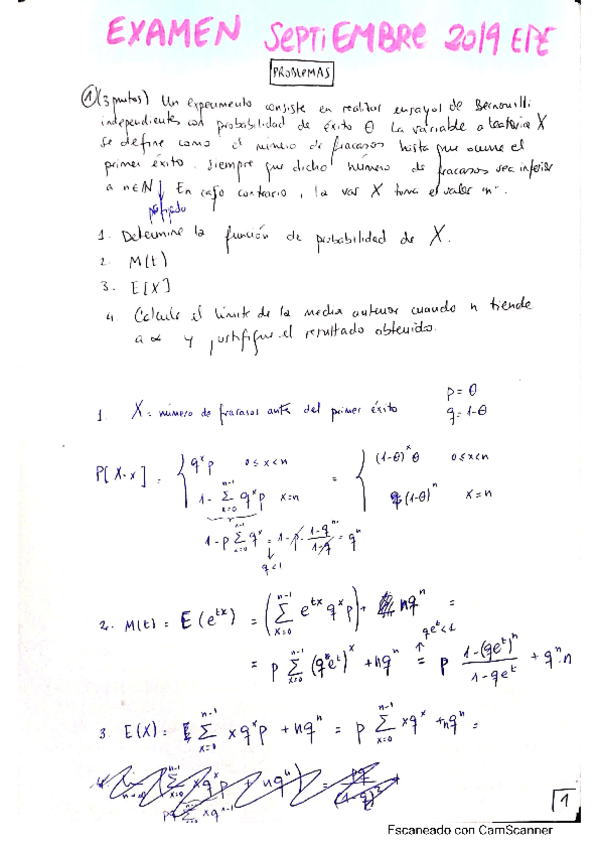 EXAMEN SEPTIEMBRE 2019 EPE
PROBLEMAS
1 (3 puntos) Un experimento consiste en realizar ensayos de Bernouilli
independientes con probabilidad de éxito θ La variable aleatoria X
se define como el número de fracasos hasta que ocurre el
primer éxito. siempre que dicho número de fracasos sea inferior
a n∈N En caso contrario, la var X toma el valor "n".
prefijado
1. Determine la función de probabilidad de X.
2. M(t)
3. E[X]
4. Calcule el límite de la media anterior cuando n tiende
a ∝ y justifique el resultado obtenido.
1. X = número de fracasos antes del primer éxito p = θ
q = 1-θ
P[X=x] = { q^x p 0≤x<n = { (1-θ)^x θ 0≤x<n
1 - Σ_{x=0}^{n-1} q^x p x=n (1-θ)^n x=n
1 - p Σ_{x=0}^{n-1} q^x = 1 - p · (1-q^n)/(1-q) = q^n
q<1
2. M(t) = E(e^{tx}) = (Σ_{x=0}^{n-1} e^{tx} q^x p) + nq^n =
qe^t<1
= p Σ_{x=0}^{n-1} (qe^t)^x + nq^n = p (1-(qe^t)^n)/(1-qe^t) + q^n·n
3. E(X) = Σ_{x=0}^{n-1} xq^x p + nq^n = p Σ_{x=0}^{n-1} xq^x + nq^n =
1
Escaneado con CamScanner